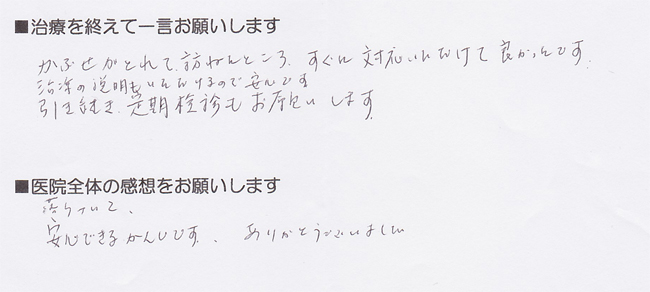 ■治療を終えて一言お願いします
かぶせがとれて、訪ねたところ、すぐに対応いただけて良かったです。
治療の説明もいただけるので安心です
引き続き、定期検診もお願いします。
■医院全体の感想をお願いします
落ついて、
安心できるかんじです。 ありがとうございました